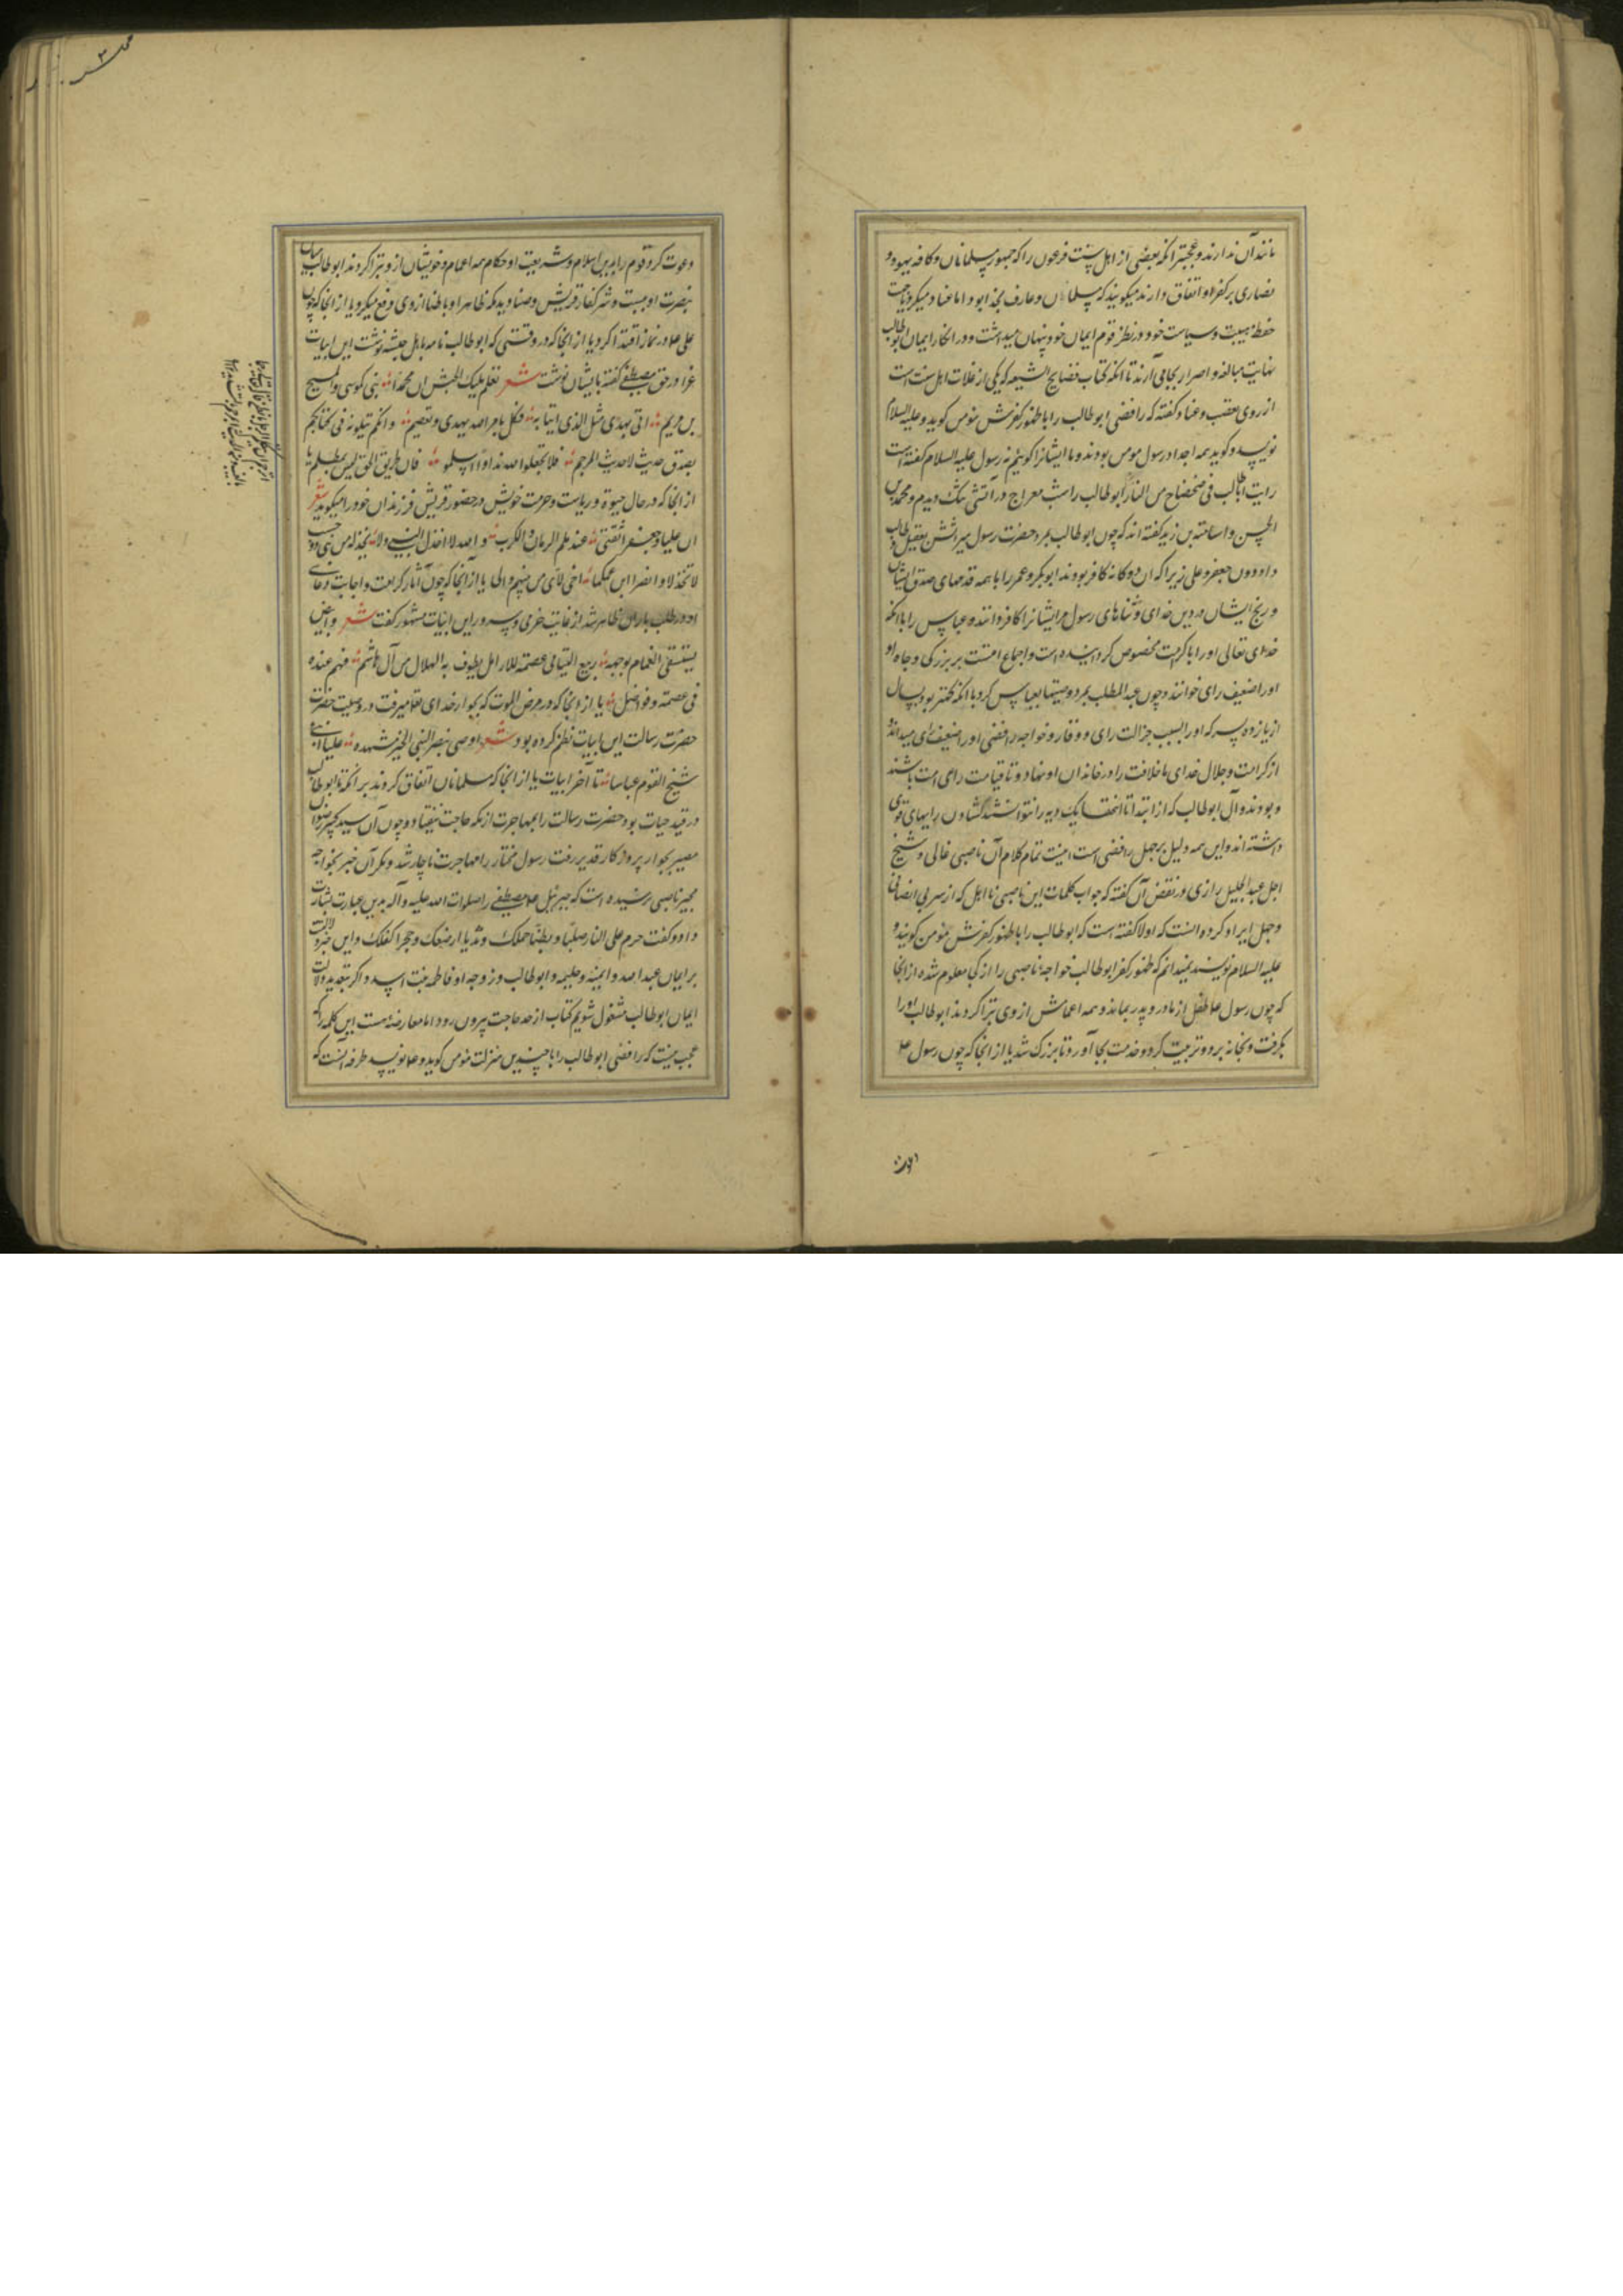 مانند آن ندارند و عجبتر آنکه بعضی از اهل سنت فرعون را که جمهور مسلمانان و کافه یهود و
نصاری بر کفر او اتفاق دارند میگویند که مسلمان و عارف بخدا بود اما عناد میکرد و بجهت
حفظ هیبت و سیاست خود در نظر قوم ایمان خود پنهان میداشت و در انکار ایمان ابوطالب
نهایت مبالغه و اصرار بجا می آرند تا آنکه کتاب فضایح الشیعه که یکی از غلات اهل سنت است
از روی تعصب و عناد گفته که رافضی ابوطالب را با ظهور کفرش مؤمن گوید و علیه السلام
نویسد و گوید همه اجداد رسول مومن بودند و ما ایشانرا گوییم نه رسول علیه السلام گفته است
رایت اباطالب فی ضحضاح من النار ابوطالب را شب معراج در آتشی تنک دیدم و محمد بن
الحسن و اسامة بن زید گفته اند که چون ابوطالب بمرد حضرت رسول میراثش بعقیل و طالب
داد دون جعفر و علی زیرا که آن دوگانه کافر بودند ابوبکر و عمر را با همه قدمهای صدق ایشان
و رنج ایشان در دین خدای و ثناهای رسول مر ایشانرا کافر دانند و عباس را با آنکه
خدای تعالی او را با کرامت مخصوص کردانیده است و اجماع امتست بر بزرکی و جاه او
او را ضعیف رای خوانند و چون عبدالمطلب بمرد وصیتها بعباس کرد با آنکه کهتر بود بسال
از یازده پسر که او را بسبب جزالت رای و وقار و خواجه رافضی او را ضعیف رای میداند
از کرامت و جلال خدای ما خلافت را در خاندان او نهاد و تا قیامت رای امت باشند
و بودند و آل ابوطالب که از ابتدا تا انتها یک دیه را نتوانستند گشادن رایهای قوی
داشته اند و این همه دلیل بر جهل رافضی است اینست تمام کلام آن ناصبی غالی و شیخ
اجل عبدالجلیل رازی در نقض آن گفته که جواب کلمات این ناصبی نا اهل که از سر بی انصافی
و جهل ایراد کرده آنست که اولا گفته است که ابوطالب را با ظهور کفرش مؤمن گویند و
علیه السلام نویسند نمیدانم که ظهور کفر ابوطالب خواجه ناصبی را از کی معلوم شده از آنجا
که چون رسول ع طفل از مادر و پدر بماند و همه اعمامش از وی تبرا کردند ابوطالب او را
بگرفت و بخانه برد و تربیت کرد و خدمت بجا آورد تا بزرک شد یا از آنجا که چون رسول ع
دعوت کرد قوم را بدین اسلام و شریعت و احکام همه اعمام و خویشان ازو تبرا کردند ابوطالب میان
بنصرت او ببست و شر کفار قریش و صنادید مکه ظاهرا و باطنا از وی دفع میکرد یا از آنجا که چون
علی ع در نماز اقتدا کرد یا از آنجا که در وقتی که ابوطالب نامه باهل حبشه نوشت این ابیات
غرا در حق مصطفی گفته بایشان نوشت شعر تعلم ملیک الحبش ان محمدا نبی کموسی و المسیح
بن مریم اتی بهدی مثل الذی اتیا به فکل بامر الله یهدی و یعصم و انکم تتلونه فی کتابکم
بصدق حدیث لا حدیث المرجم فلا تجعلوا لله ندا و اسلموا فان طریق الحق لیس بمظلم یا
از آنجا که در حال حیوة و ریاست و حرمت خویش در حضور قریش فرزندان خود را میگوید شعر
ان علیا و جعفرا ثقتی عند ملم الزمان و الکرب و الله لا اخذل النبی و لا یخذله من بنی ذو حسب
لا تخذلا و انصرا ابن عمکما اخی لامی من بینهم و ابی یا از آنجا که چون آثار کرامت و اجابت دعای
او در طلب باران ظاهر شد از غایت خرمی و سرور این ابیات مشهور گفت شعر و ابیض
یستسقی الغمام بوجهه ربیع الیتامی عصمة للارامل یطوف به الهلاک من آل هاشم فهم عنده
فی عصمة و فواضل یا از آنجا که در مرض الموت که بجوار خدای تعا میرفت در وصیت حضرت
حضرت رسالت این ابیات نظم کرده بود شعر اوصی بنصر النبی الخیر مشهده علیا ابنی و
شیخ القوم عباسا تا آخر ابیات یا از آنجا که مسلمانان اتفاق کردند بر آنکه تا ابوطالب
در قید حیات بود حضرت رسالت را بمهاجرت از مکه حاجت نیفتاد و چون آن سید
بجوار پروردگار قدیر رفت رسول مختار را مهاجرت ناچار شد و مکر آن خبر بخواجه
مجبر ناصبی نرسیده است که جبرئیل ع مصطفی را صلوات الله علیه و آله بدین عبارت بشارت
داد و گفت حرم علی النار صلبا و بطنا حملک و ثدیا ارضعک و حجرا کفلک و این خبر دلالت
بر ایمان عبدالله و آمنه و حلیمه و ابوطالب و زوجه او فاطمه بنت اسد و اگر بتعدید دلالت
ایمان ابوطالب مشغول شویم کتاب از حد حاجت بیرون رود اما معارضه هست این کلمه را که
عجب نیست که رافضی ابوطالب را با چندین منزلت مؤمن گوید و ع نویسد طرفه آنست که